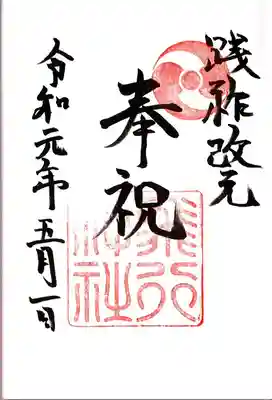 践祚改元
奉祝
飛行神社
令和元年五月一日